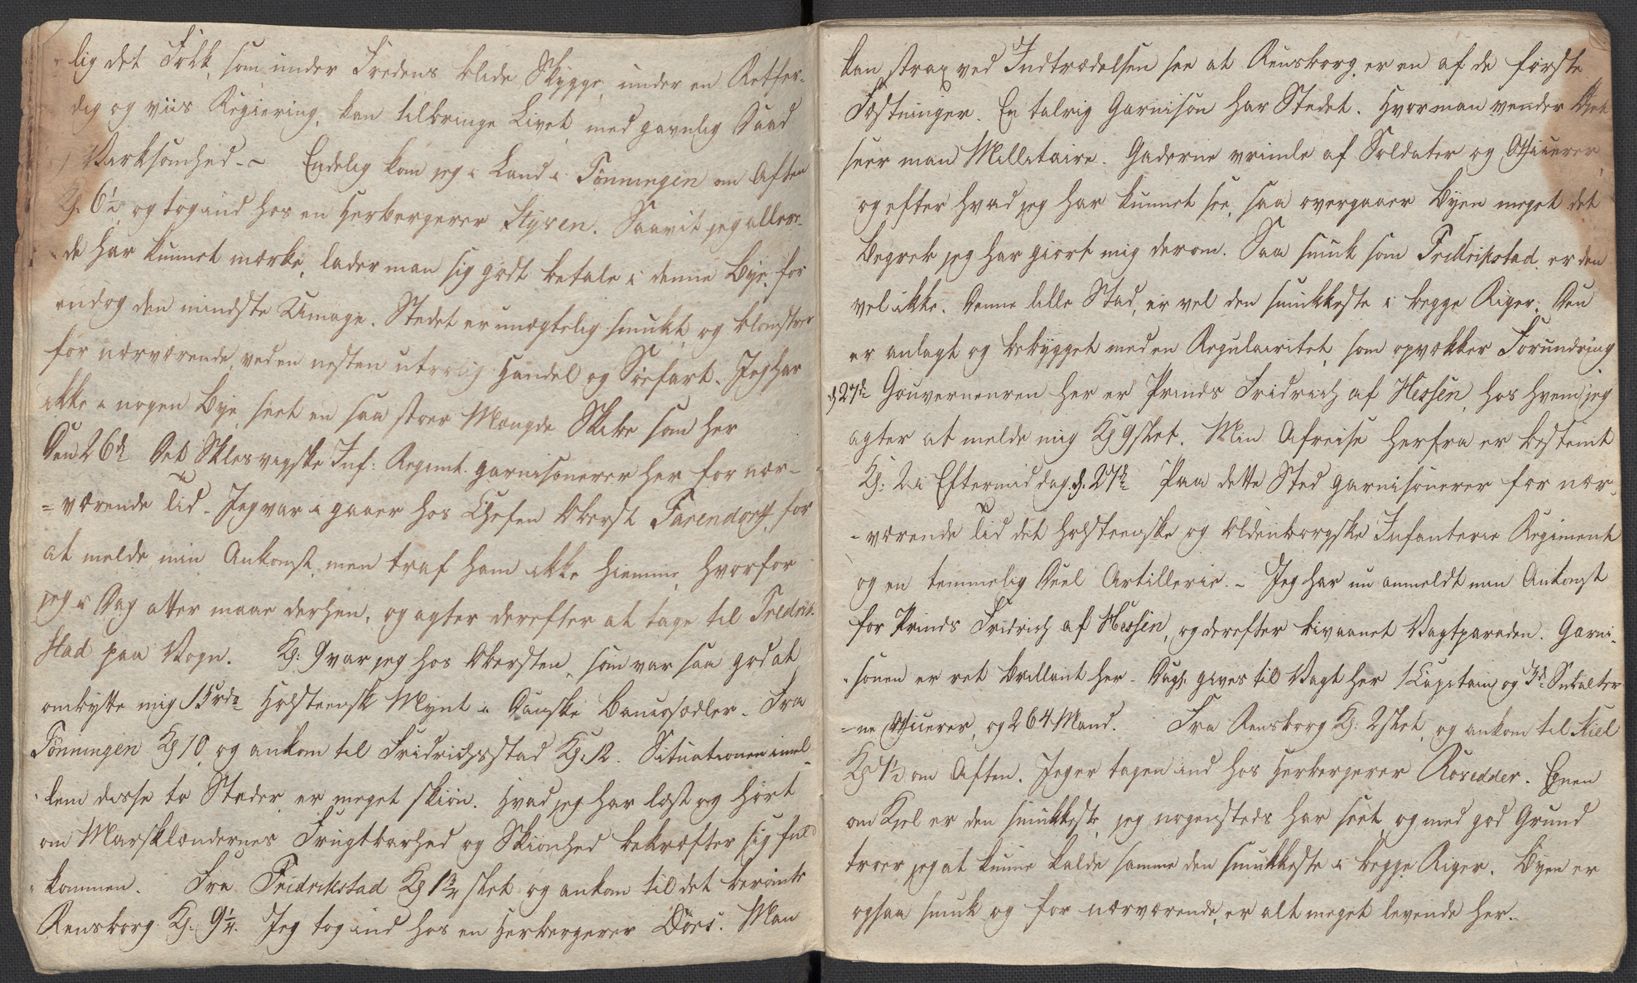 lig det Folk, som under Fredens blide Skygge, under en Retfær-
dig og viis Regiering, kan tilbringe Livet med gavnlig Daad
Virksomhed. – Endelig kom jeg i Land i Tönningen om Aften
Kl. 6½, og tog ind hos en Herbergerer Styren. Saavit jeg allere-
de har kunnet mærke, lader man sig godt betale i denne Bye, for
endog den mindste Umage. Stedet er unægtelig smukt, og blomstrer
for nærværende, ved en nesten utrolig Handel og Søefart. Jeg har
ikke i nogen Bye, seet en saa stoer Mængde Skibe som her
Den 26de Det Slesvigske Inf: Regimt. garnisonerer her for nær-
= værende Tid. Jeg var i gaaer hos Chefen Oberst Farendorff, for
at melde min Ankomst, men traf ham ikke hiemme, hvorfor
jeg i Dag atter maae derhen, og agter derefter at tage til Fredrik-
stad paa Vogn. Kl: 9 var jeg hos Obersten, som var saa god at
ombytte mig 15 rdr Holsteensk Mynt i Danske Bancosedler. Fra
Tönningen Kl 10, og ankom til Fridrichsstad Kl: 12. Situationen imel-
lem disse to Stæder er meget skiön. Hvad jeg har læst og hört
om Marsklændernes Frugtbarhed og Skiönhed bekræfter sig ful
kommen. Fra Fridrikstad Kl 1¾ slet og ankom til det berömte
Rensborg Kl. 9¼. Jeg tog ind hos en Herbergerer Dörs. Man
kan strax ved Indtrædelsen see at Rensborg er en af de förste
Fæstninger. En talrig Garnison har Stedet. Hvor man vender Öjet
seer man Millitaire. Gaderne vrimle af Soldater og Officerer,
og efter hvad jeg har kunnet see, saa overgaaer Byen meget det
Begreb jeg har giort mig derom. Saa smuk som Fredrikstad er den
vel ikke. Denne lille Stad, er vel den smukkeste i begge Riger. Den
er anlagt og bebygget med en Regulairitet, som opvækker Forundring
d. 27de Gouverneuren her er Prinds Fridrich af Hessen, hos hvem jeg
agter at melde mig Kl 9 slet. Min Afreise herfra er bestemt
Kl: 2 i Eftermiddag d. 27de Paa dette Sted garnisonerer for nær-
- værende Tid det Holsteenske og Oldenborgske Infanterie Regiment
og en temmelig Deel Artillerie. – Jeg har nu anmeldt min Ankomst
for Prinds Fridrich af Hessen, og derefter bivaanet Vagtparaden. Garni-
sonen er ret brillant her. Dagl: gives til Vagt her 1 Capitain og 3de Subalter
-ne Officerer, og 264 Mand. Fra Rensborg Kl: 2 slet, og ankom til Kiel
Kl 7½ om Aften. Jeg er tagen ind hos Herbergerer Roredder. Egnen
om Kiel er den smukkeste, jeg nogensteds har seet, og med god Grund
troer jeg at kunne kalde samme den smukkeste i begge Riger. Byen er
ogsaa smuk og for nærværende, er alt meget levende her.